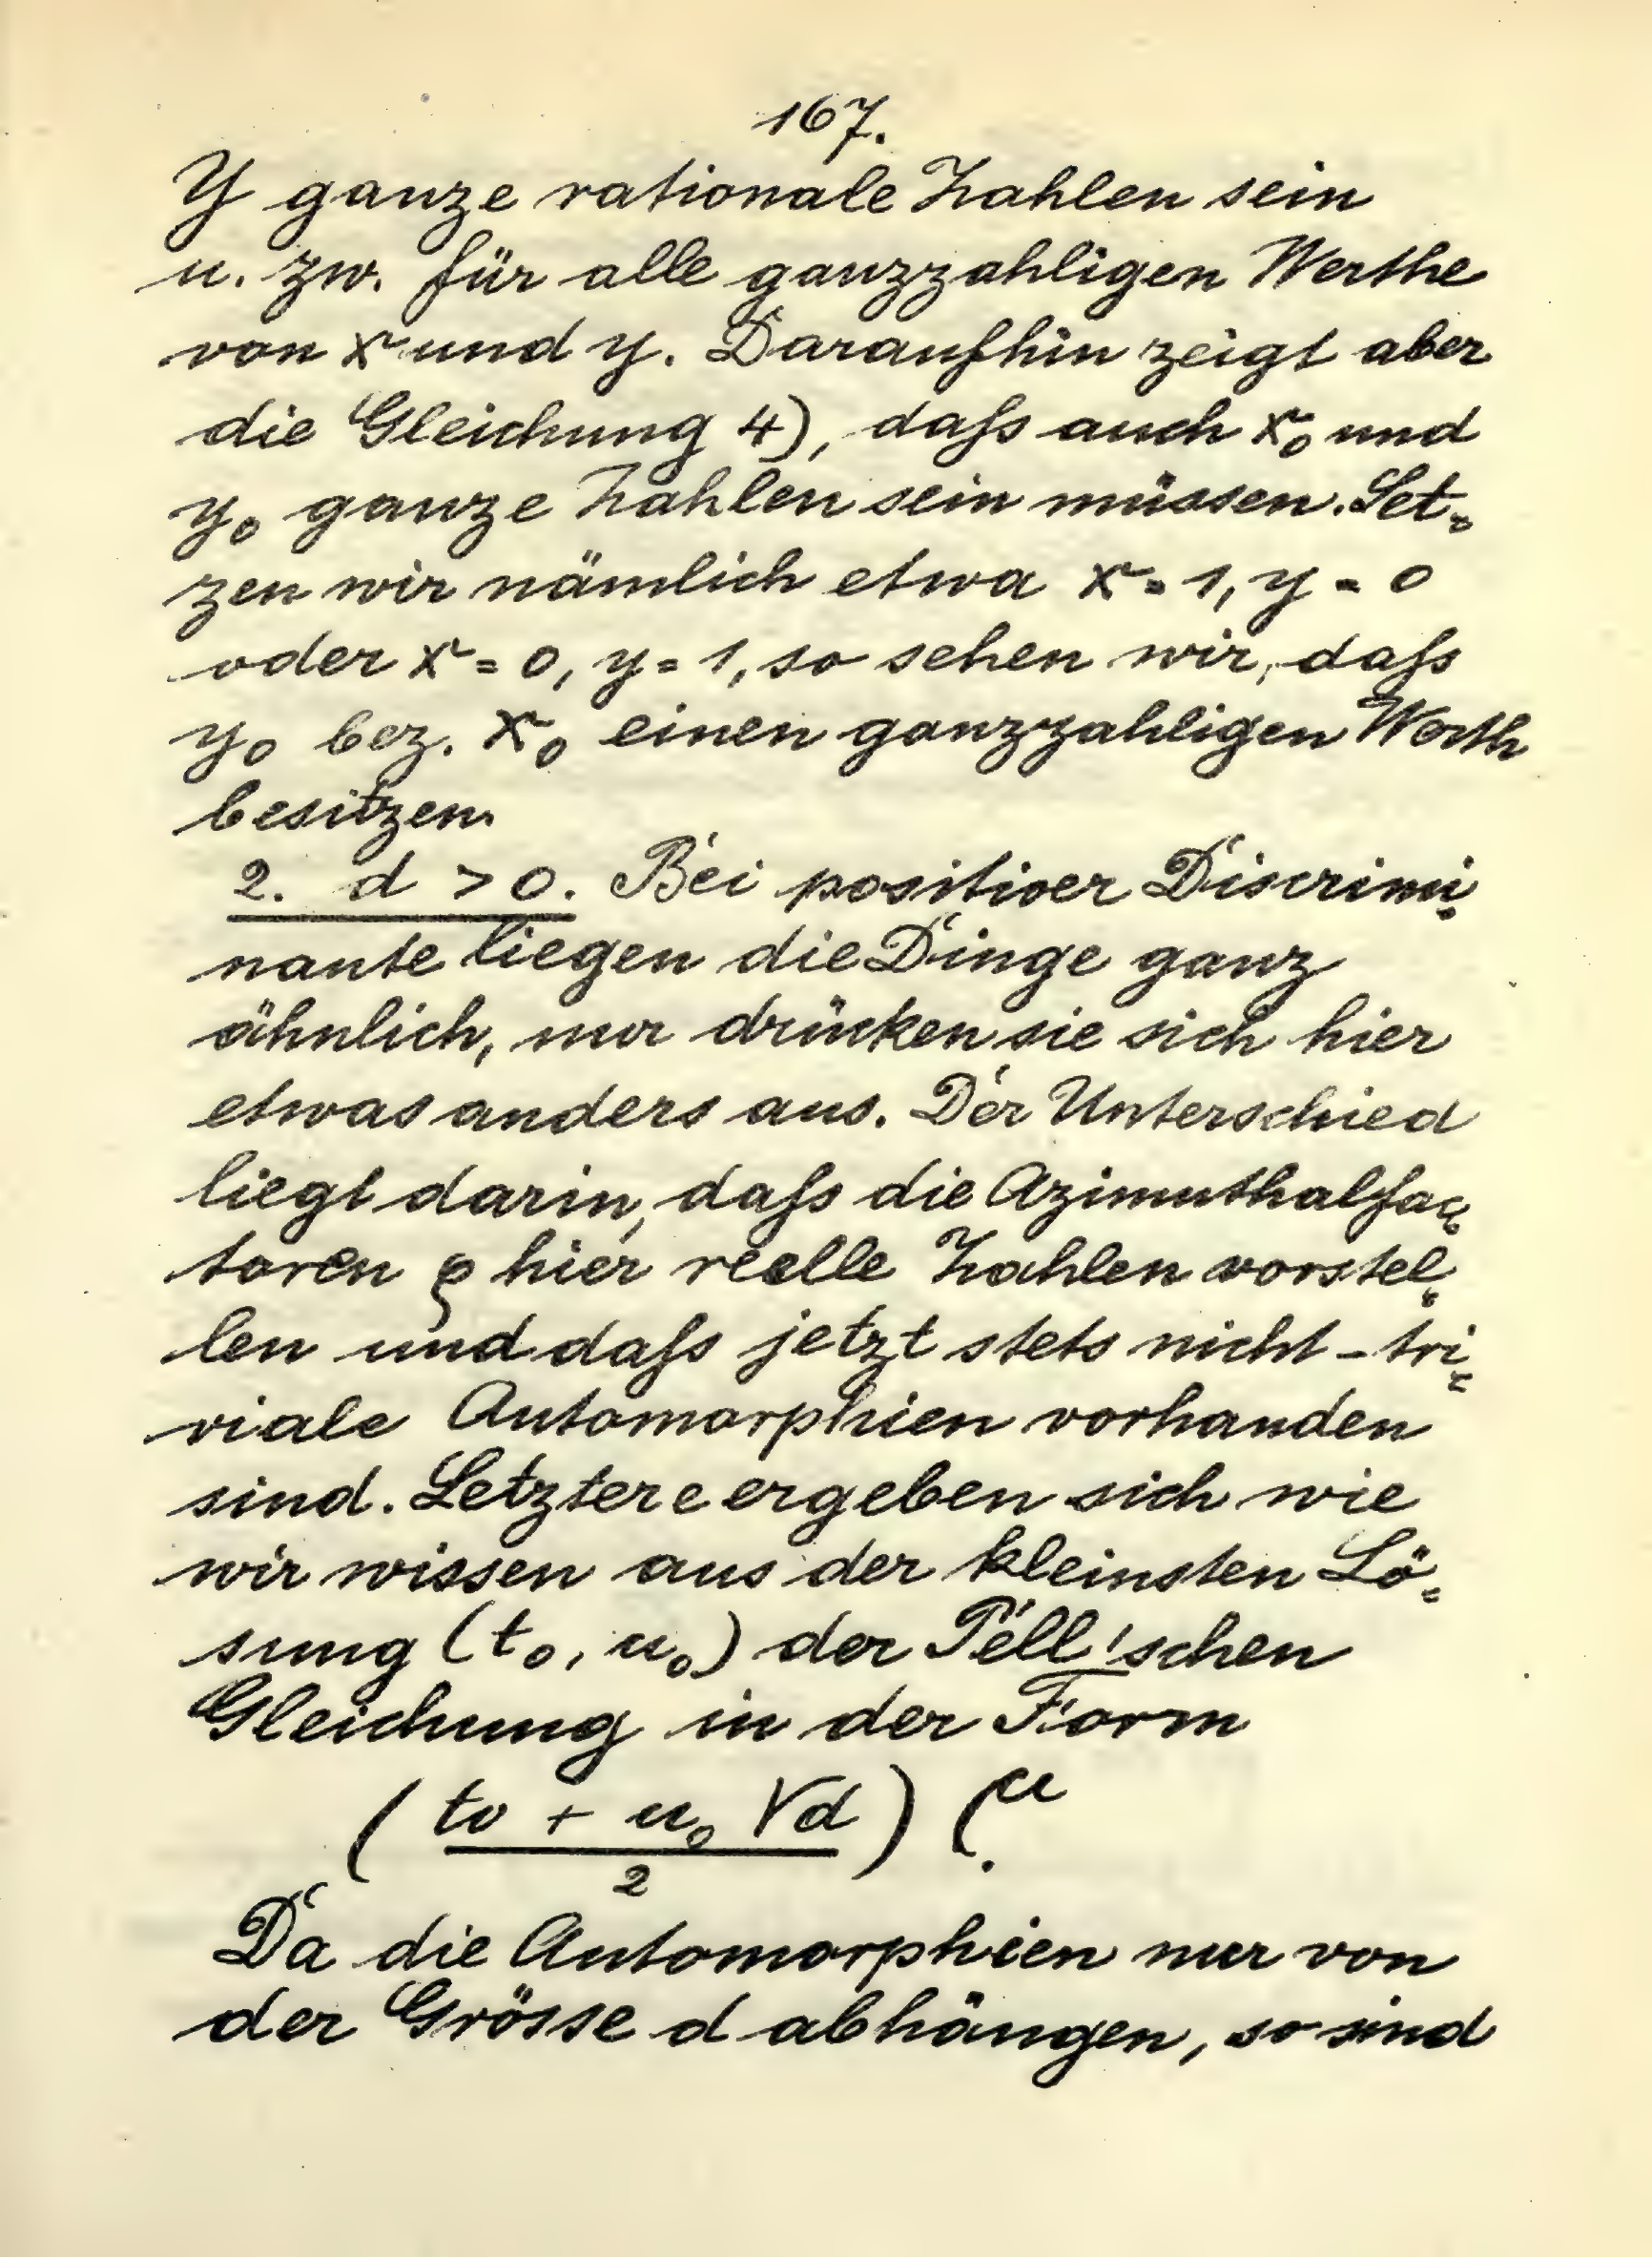 167.
Y ganze rationale Zahlen sein
u. zw. für alle ganzzahligen Werthe
von x und y. Daraufhin zeigt aber
die Gleichung 4), daſs auch x₀ und
y₀ ganze Zahlen sein müssen. Set=
zen wir nämlich etwa x = 1, y = 0
oder x = 0, y = 1, so sehen wir, daſs
y₀ bez. x₀ einen ganzzahligen Werth
besitzen.
2. d > 0. Bei positiver Discrimi=
nante liegen die Dinge ganz
ähnlich, nur drücken sie sich hier
etwas anders aus. Der Unterschied
liegt darin, daſs die Azimuthalfac=
toren ρ hier reelle Zahlen vorstel=
len und daſs jetzt stets nicht-tri=
viale Automorphien vorhanden
sind. Letztere ergeben sich wie
wir wissen aus der kleinsten Lö=
sung (t₀, u₀) der Pell'schen
Gleichung in der Form
( t₀ + u₀ √d ) μ
2
Da die Automorphien nur von
der Grösse d abhängen, so sind